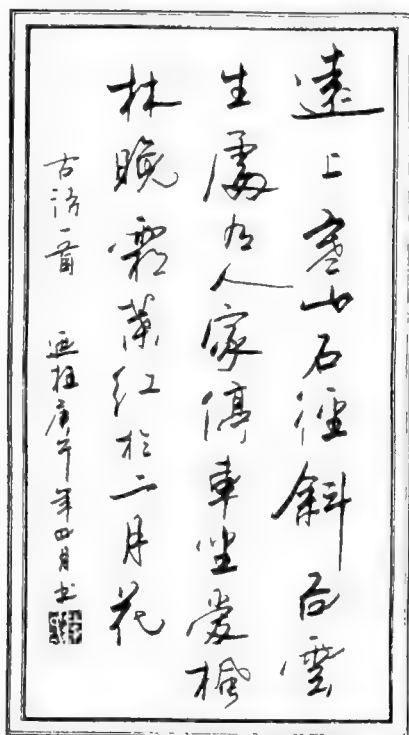 遠上寒山石徑斜白雲
生處有人家停車坐愛楓
林晚霜葉紅於二月花
古詩一首 庚午年四月書